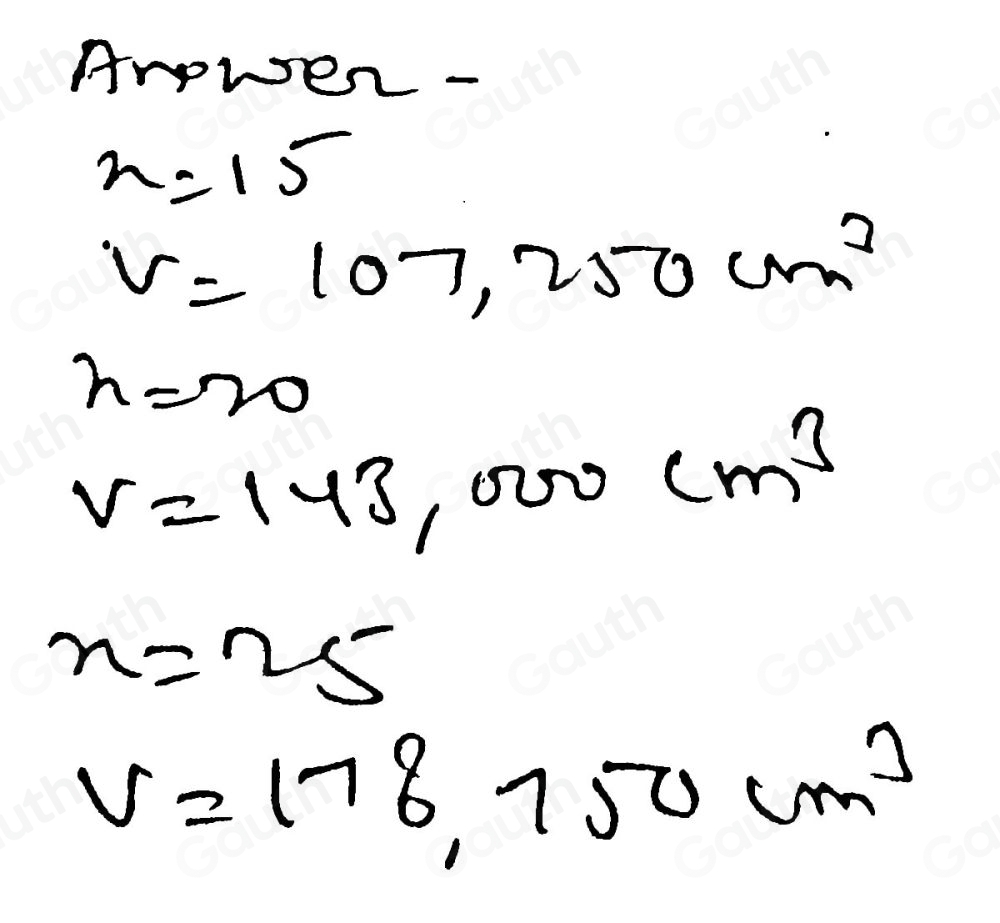 Answer -
n=15
V= 107,250 cm³
n=20
V=143,000 cm³
n=25
V=178,750 cm³